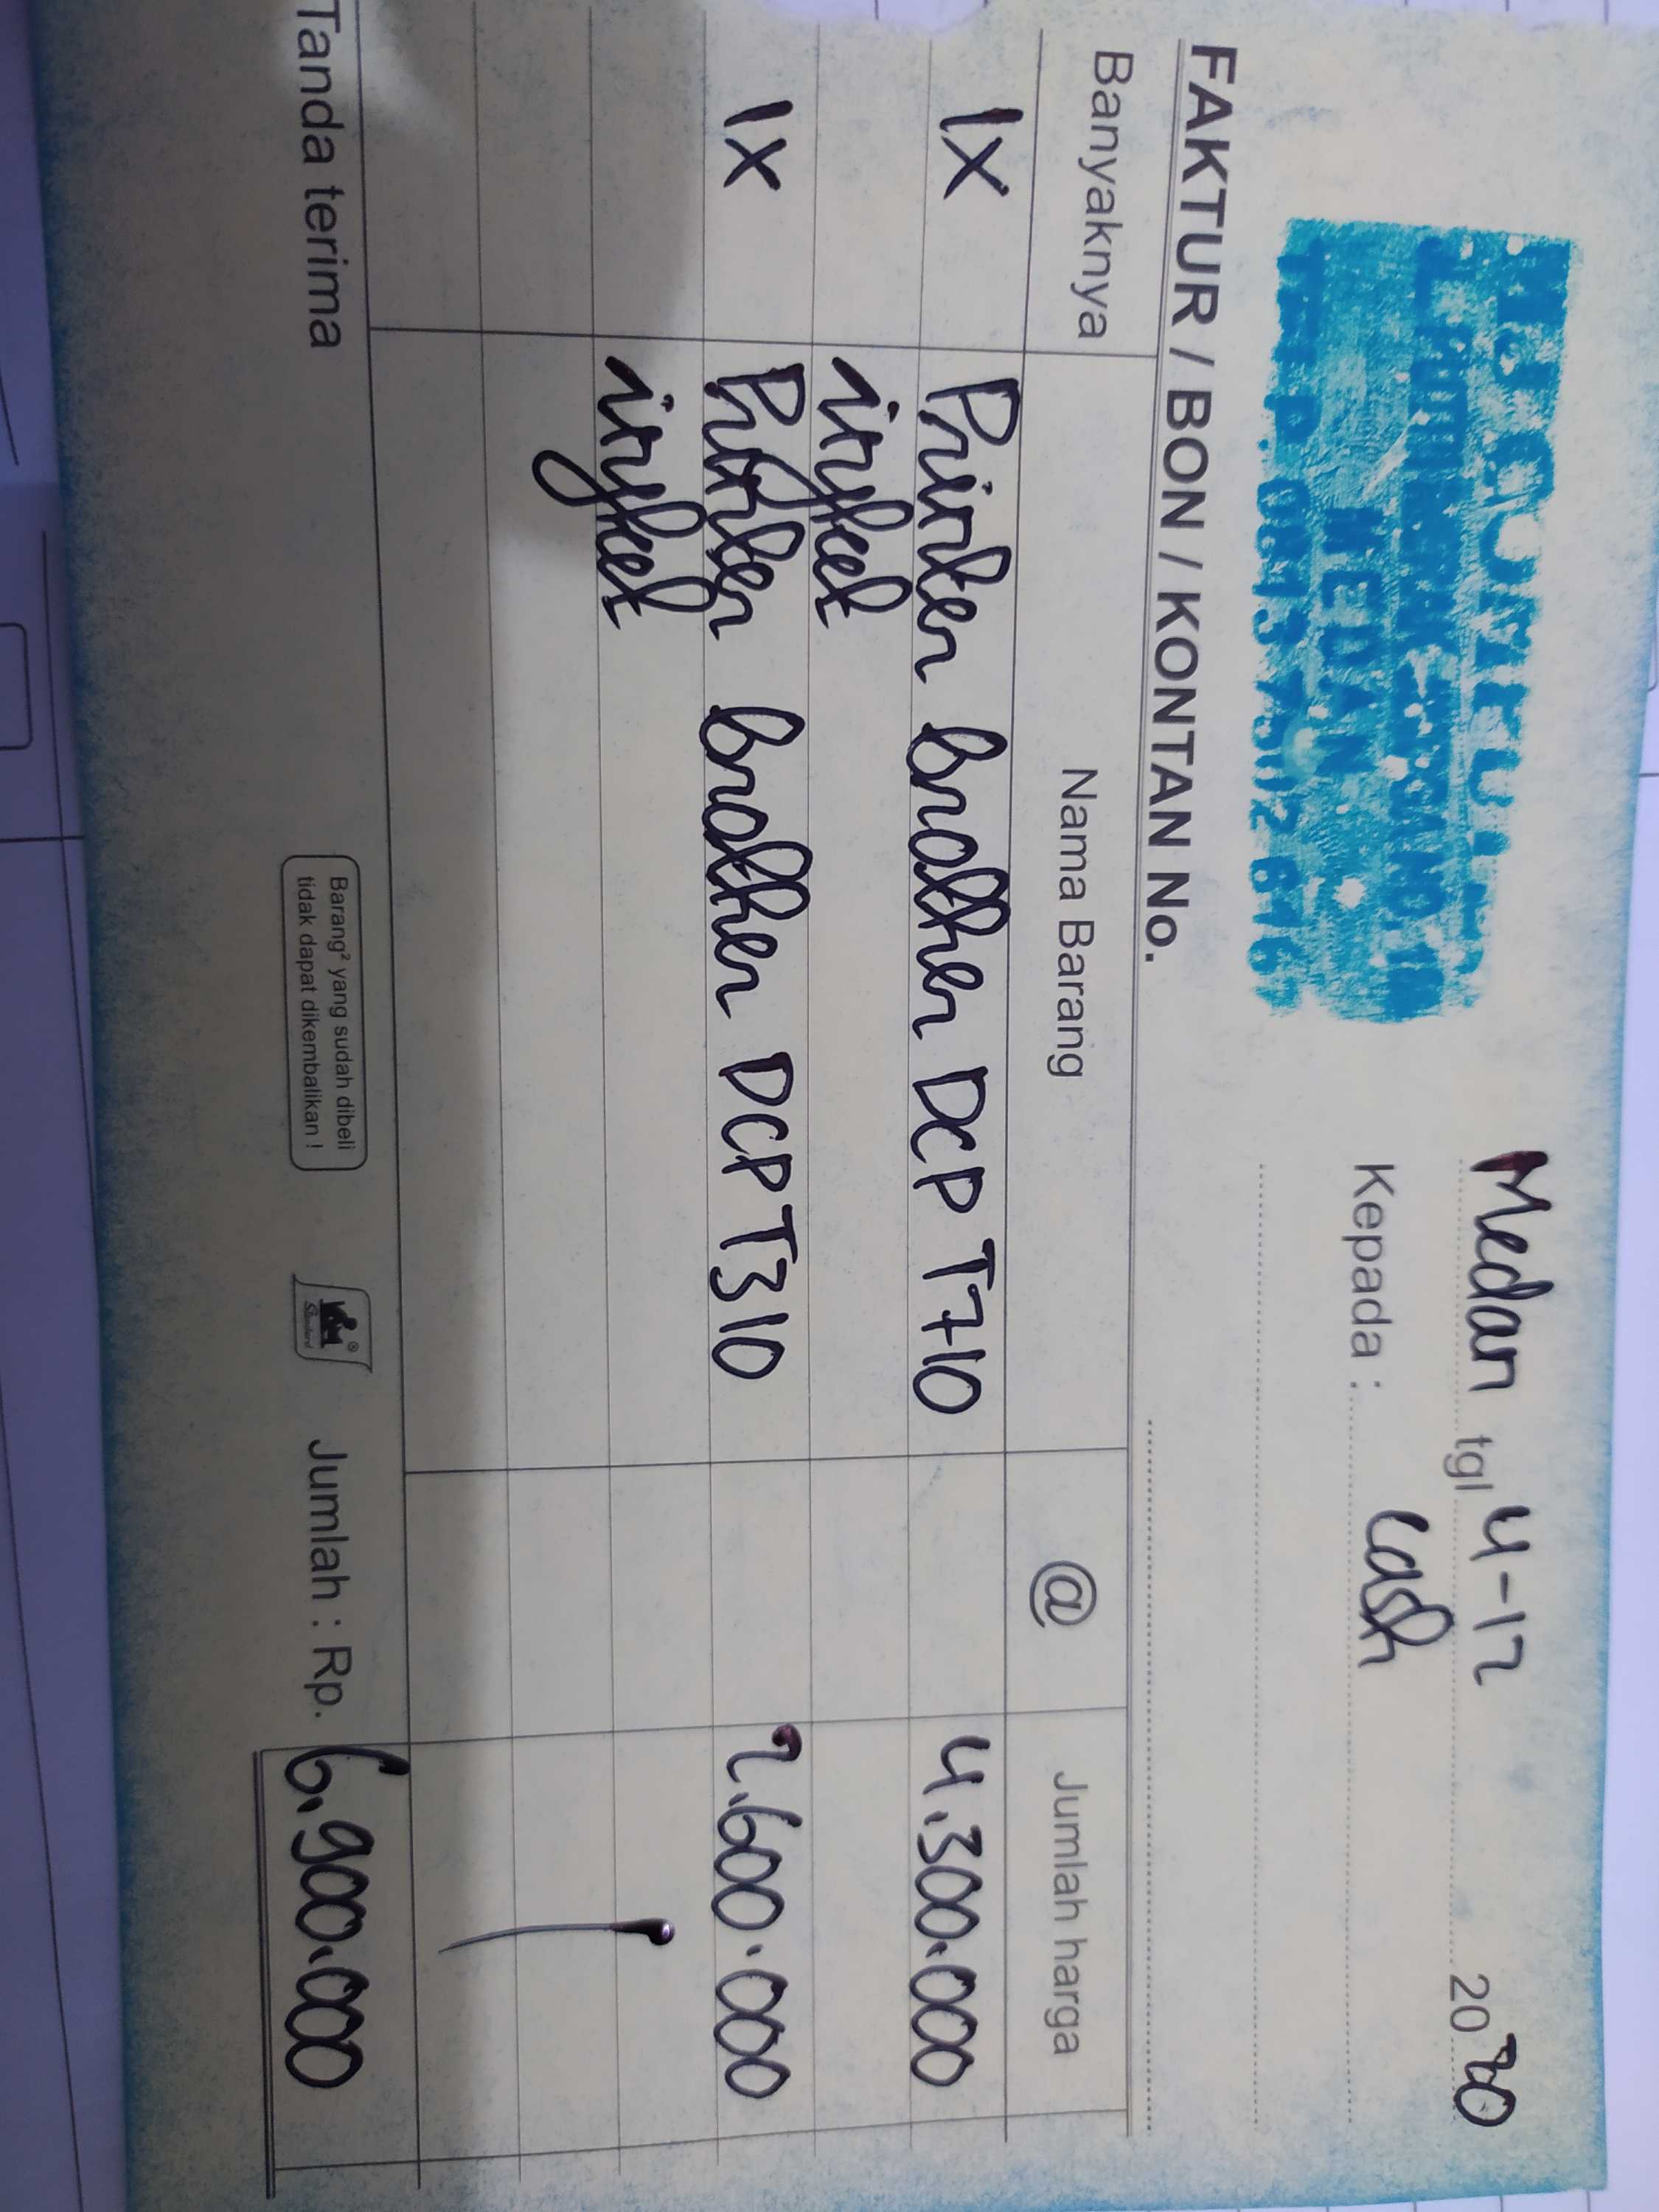 Medan tgl 4-12 2020
Kepada : Cash
MEDAN
FAKTUR / BON / KONTAN No.
Banyaknya Nama Barang @ Jumlah harga
1x Printer brother DCP T710 4.300.000
inyket
1x Printer brother DCP T310 2.600.000
inyket
Tanda terima
Barang² yang sudah dibeli
tidak dapat dikembalikan !
Jumlah : Rp. 6.900.000